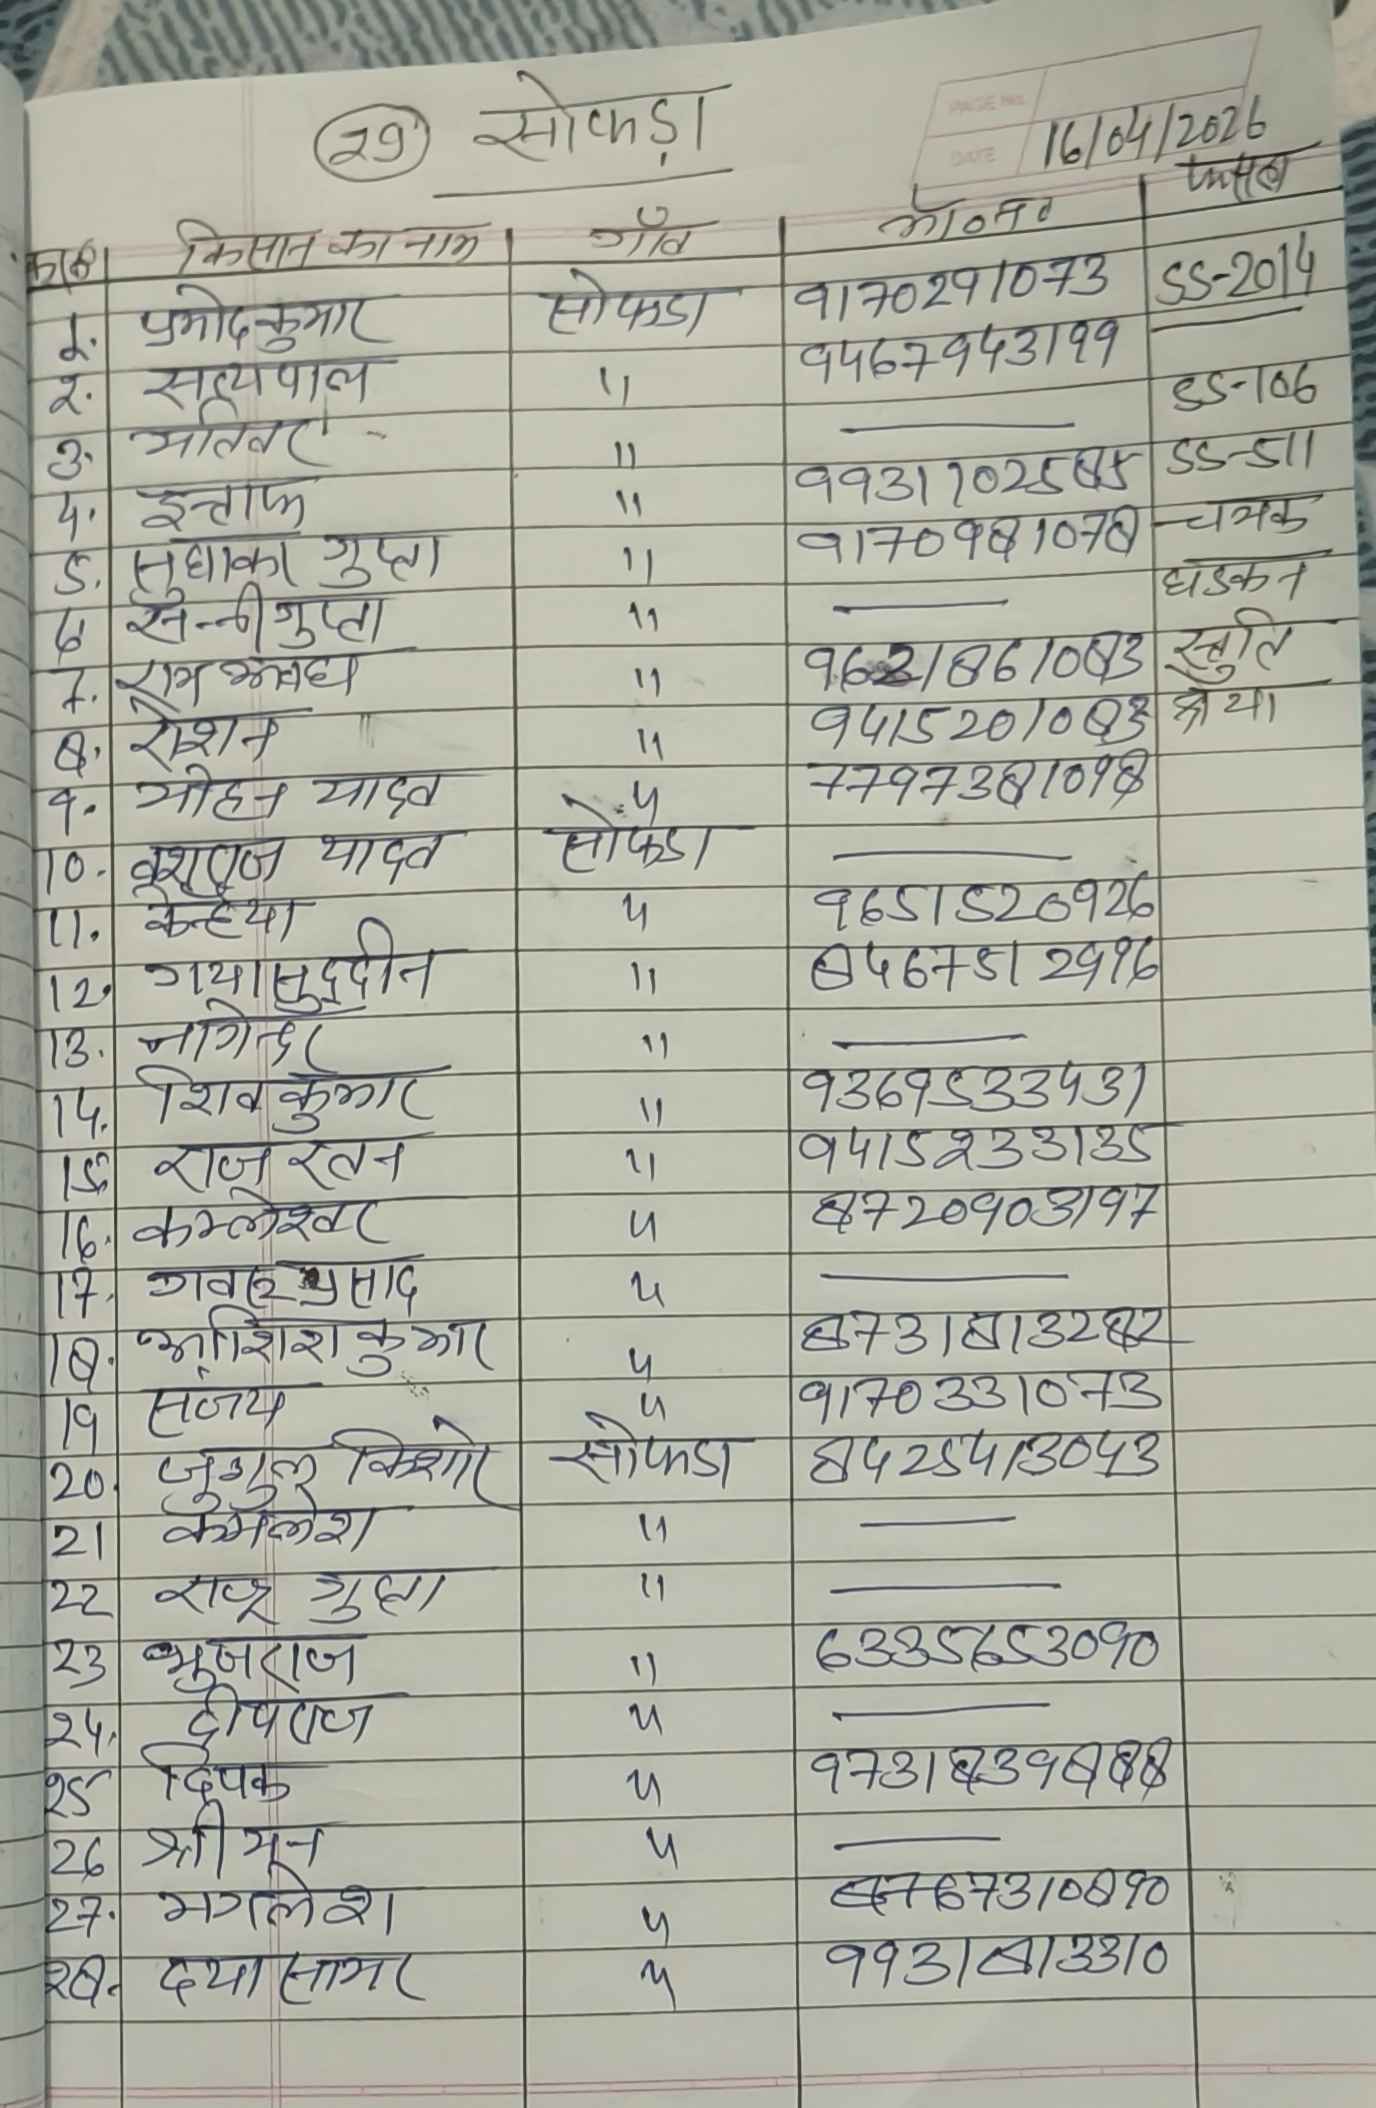 29 सोफडा
PAGE NO.
DATE 16/04/2026
क्र0स0 किसान का नाम गाँव मो0न0 फसल
1. प्रमोद कुमार सोफडा 9170291073 SS-2014
2. सत्यपाल 11 9467943199
3. 11 — SS-106
4. 11 9931702585 SS-511
5. सुधाकर गुप्ता 11 9170981078 चमक
6. सन्नी गुप्ता 11 — धडकन
7. राम अवध 11 9621861083 स्तुति
8. रोशन 11 9415201083 श्रेया
9. मोहन यादव 11 7797381098
10. यादव सोफडा —
11. कन्हैया 11 9651520926
12. गयासुद्दीन 11 8467512996
13. नागेन्दर 11 —
14. शिव कुमार 11 9369533431
15. राज रतन 11 9415233135
16. कमलेश्वर 11 8720903197
17. प्रसाद 11 —
18. आशिश कुमार 11 8731813282
19 संजय 11 9170331073
20. जुगुल किशोर सोफडा 8425413043
21 कमलेश 11 —
22 राजू गुप्ता 11 —
23 भुजराज 11 6335653090
24. दीपराज 11 —
25 दिपक 11 9731839888
26 श्री 11 —
27. मगलेश 11 8767310890
28. दया सागर 11 9931813310